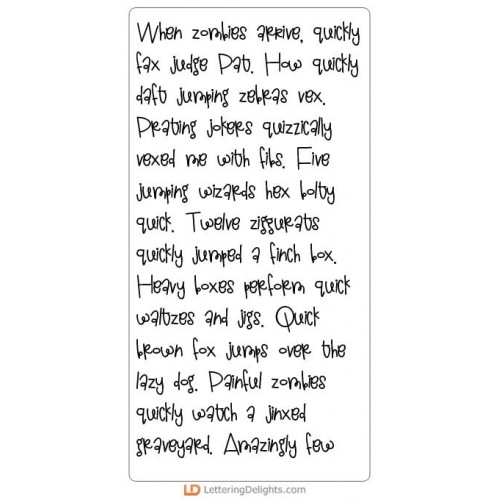 When zombies arrive, quickly
fax judge Pat. How quickly
daft jumping zebras vex.
Prating jokers quizzically
vexed me with fibs. Five
jumping wizards hex bolty
quick. Twelve ziggurats
quickly jumped a finch box.
Heavy boxes perform quick
waltzes and jigs. Quick
brown fox jumps over the
lazy dog. Painful zombies
quickly watch a jinxed
graveyard. Amazingly few
LD LetteringDelights.com